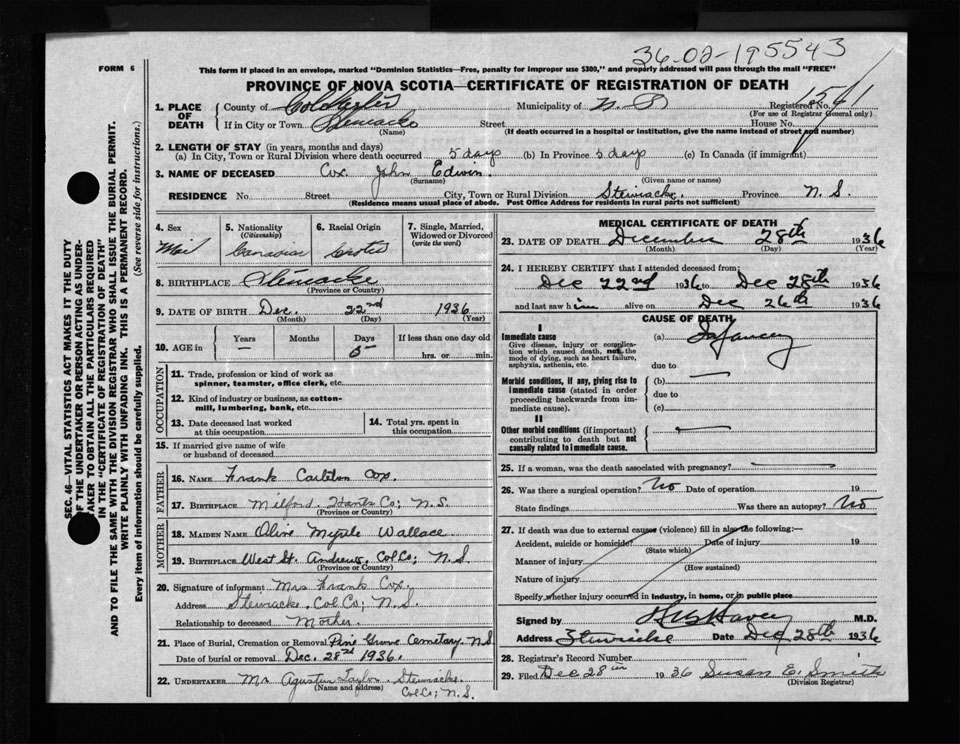 36-02-195543
FORM 6
This form if placed in an envelope, marked "Dominion Statistics—Free, penalty for improper use $300," and properly addressed will pass through the mail "FREE"
PROVINCE OF NOVA SCOTIA—CERTIFICATE OF REGISTRATION OF DEATH
1. PLACE OF DEATH County of Colchester Municipality of Registered No. 1541
(For use of Registrar General only)
If in City or Town Stewiacke Street House No.
(Name) (If death occurred in a hospital or institution, give the name instead of street and number)
2. LENGTH OF STAY (in years, months and days)
(a) In City, Town or Rural Division where death occurred 5 days (b) In Province 5 days (c) In Canada (if immigrant)
3. NAME OF DECEASED Cox John Edwin.
(Surname) (Given name or names)
RESIDENCE No. Street City, Town or Rural Division Stewiacke Province N. S.
(Residence means usual place of abode. Post Office Address for residents in rural parts not sufficient)
4. Sex 5. Nationality (Citizenship) 6. Racial Origin 7. Single, Married, Widowed or Divorced (write the word)
Canadian
8. BIRTHPLACE Stewiacke
(Province or Country)
9. DATE OF BIRTH Dec. 22nd 1936
(Month) (Day) (Year)
10. AGE in Years Months Days If less than one day old
— 5 hrs. or min.
OCCUPATION
11. Trade, profession or kind of work as spinner, teamster, office clerk, etc.
12. Kind of industry or business, as cotton-mill, lumbering, bank, etc.
13. Date deceased last worked at this occupation
14. Total yrs. spent in this occupation
15. If married give name of wife or husband of deceased
FATHER
16. NAME Frank Carlton Cox
17. BIRTHPLACE Milford. Hants Co; N.S.
(Province or Country)
MOTHER
18. MAIDEN NAME Olive Myrtle Wallace
19. BIRTHPLACE West St. Andrews, Col Co; N.S
(Province or Country)
20. Signature of informant Mrs Frank Cox.
Address Stewiacke. Col. Co; N.S.
Relationship to deceased Mother.
21. Place of Burial, Cremation or Removal Pine Grove Cemetary. N.S
Date of burial or removal Dec. 28th 1936.
22. UNDERTAKER Mr Taylor. Stewiacke.
(Name and address) Col Co; N.S.
MEDICAL CERTIFICATE OF DEATH
23. DATE OF DEATH December 28th 1936
(Month) (Day) (Year)
24. I HEREBY CERTIFY that I attended deceased from:
Dec 22nd 1936 to Dec 28th 1936
and last saw him alive on Dec 26th 1936
CAUSE OF DEATH
I
Immediate cause
Give disease, injury or complication which caused death, not the mode of dying, such as heart failure, asphyxia, asthenia, etc.
(a) Infancy
due to
Morbid conditions, if any, giving rise to immediate cause (stated in order proceeding backwards from immediate cause).
(b) —
due to
(c)
II
Other morbid conditions (if important) contributing to death but not causally related to immediate cause.
—
25. If a woman, was the death associated with pregnancy? —
26. Was there a surgical operation? No Date of operation 19
State findings Was there an autopsy? No
27. If death was due to external causes (violence) fill in also the following:—
Accident, suicide or homicide? Date of injury 19
(State which)
Manner of injury
(How sustained)
Nature of injury
Specify whether injury occurred in industry, in home, or in public place
Signed by M.D.
Address Stewiacke Date Dec 28th 1936
28. Registrar's Record Number
29. Filed Dec 28th 1936 Susan E. Smith
(Division Registrar)
SEC. 46—VITAL STATISTICS ACT MAKES IT THE DUTY
OF THE UNDERTAKER OR PERSON ACTING AS UNDER-
TAKER TO OBTAIN ALL THE PARTICULARS REQUIRED
IN THE "CERTIFICATE OF REGISTRATION OF DEATH"
AND TO FILE THE SAME WITH THE DIVISION REGISTRAR WHO SHALL ISSUE THE BURIAL PERMIT.
WRITE PLAINLY WITH UNFADING INK. THIS IS A PERMANENT RECORD.
Every item of information should be carefully supplied. (See reverse side for instructions.)